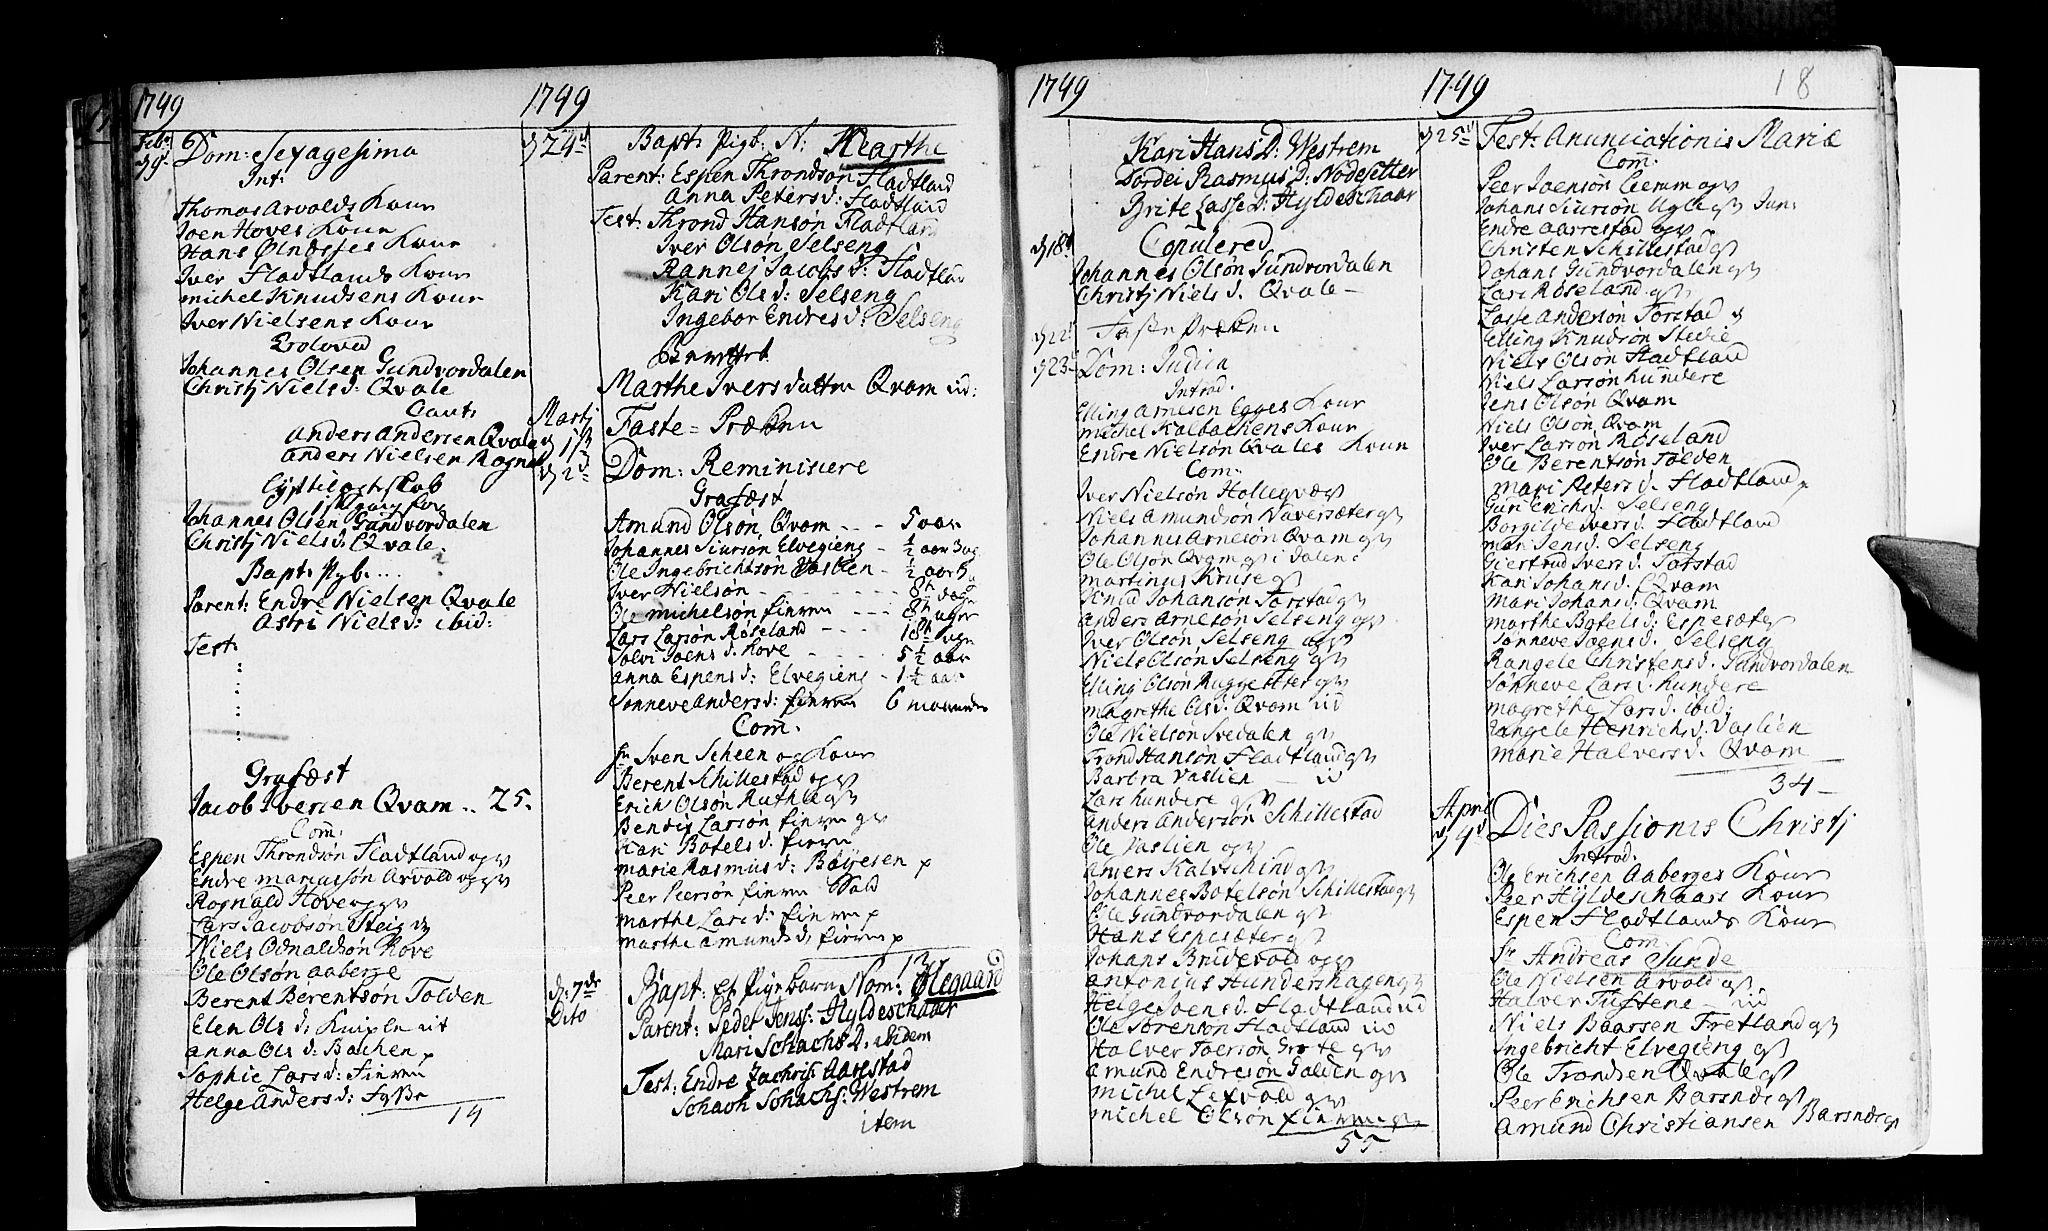 1749
Feb:
d 9d
Dom: Sexagesima
Int:
Thomas Arvolds Koun
Joen Hoves Koun
Hans Ølnæsses Koun
Iver Fladtlands Koun
michel Knudsens Koun
Iver Nielsens Koun
Troloved
Johannes Olsen Gundvordalen
Christj Niels d. Qvale
Caut:
anders andersen Qvale
anders Nielsen Rognal
Johannes Olsen Gundvordalen
Christj Niels d. Qvale
Bapt:
Parent: Endre Nielsen Qvale
Astri Niels d: ibid:
Test:
Grafæst
Jacob Iversen Qvam .. 25.
Com:
Espen Throndsøn Fladtland
Endre mariussøn Arvold
Rognald Hove
Lars Jacobsøn Steig
Niels Odnaldsøn Hove
Ole Olsøn aaberge
Berent Berentsøn Tolden
Elen Ols d:
anna Ols d: Bachen
Sophie Lars d:
Helge Anders d:
19
1749
d 24d
Bapt: Pigb: N: Marthe
Parent: Espen Throndsøn Fladtland
Anna Peters d: Fladtland
Test: Thrond Hansøn Fladtland
Iver Olsøn Selseng
Rannej Jacobs d: Fladtland
Kari Ols d: Selseng
Ingebor Endres d: Selseng
Marthe Ivers datter Qvam
Martj
d 1st
Faste = Præken
d 2d
Dom: Reminiscere
Grafæst
Amund Olsøn Qvam - - - 5 aar
Johannes Siursøn Elvegieng - ½ aar 3 ug
Ole Ingebrichtsøn Vaslien - ½ aar
Iver Nielsøn - - - 8t dage
Ole michelsøn - - - 8t uger
Lars Larsøn Røseland - - - 18t uger
Solvi Joens d. Hove - - - 5½ aar
anna Espens d: Elvegieng - 1½ aar
Sønneve anders d: 6 maaneder
Com:
hr Sven Scheen og Koun
Berent Schillestad
Erich Olsøn
Bendix Larsøn
Kari Botels d:
marie Rasmus d: Bøyesen
Peer Peersøn
marthe Lars d:
marthe amunds d:
13
d: 7de
Dito
Bapt: et Pigebarn Nom: Olegaard
Parent: Peder Jens: Hyldeschaar
Mari Schachs D: ibidem
Test: Endre Zachris: Aarestad
Schach Schachs: Westrem
item
1749
Kari Hans D: Westrem
Dordei Rasmus D: Nodesetter
Brite Lasse D: Hyldeschaar
d 18d
Copulered
Johannes Olsøn Gundvordalen
Christj Niels d. Qvale -
d 22d
Faste Præken
d 23d
Dom: Judica
Introd.
Elling arnesen Egges Koun
michel Kalbakkens Koun
Endre Nielsøn Qvales Koun
Com:
Iver Nielsøn
Niels amundsøn Naversæter
Johannes Arnesøn Qvam
Ole Olsøn Qvam
martinus Kruse
Knud Johansøn Torstad
anders arnesøn Selseng
Iver Olsøn Selseng
Niels Olsøn Selseng
Elling Olsøn
magrethe Ols d. Qvam
Ole Nielsøn Svedalen
Trond Hansøn Fladtland
Barbra Vaslien
Lars hundere
anders Andersøn Schillestad
Ole Vaslien
anders Kalvschind
Johannes Botelsøn Schillestad
Ole Gundvordalen
Hans Espesæter
Johans Brudevold
antonius Hundershagen
Helge Joens d. Fladtland
Ole Sørensøn Fladtland
Halver Joersøn
amund Endresøn Galden
michel Lefvold
michel Olsøn
55
1749
18
d 25d
Fest: Anunciationis Mariæ
Com:
Peer Joensøn
Johans Siursøn
Endre aarrestad
Christen Schillestad
Johans Gundvordalen
Lars Røseland
Lasse andersøn Torstad
Elling Knudsøn Stedie
Niels Olsøn Fladtland
Niels Larsøn hundere
Jens Olsøn Qvam
Niels Olsøn Qvam
Iver Larsøn Røseland
Ole Berentsøn Tolden
mari Peters d. Fladtland
Guri Erichs d: Selseng
Borgilde Ivers d: Fladtland
mari Jens d. Selseng
Giertrud Ivers d: Torstad
Kari Johans d. Qvam
Mari Johans d: Qvam
marthe Botels d: Espesæter
Sønneve Joens d. Selseng
Rangele Christens d. Gundvordalen
Sønneve Lars d. hundere
magrethe Lars d. ibid:
Rangele Henrichs d: Vaslien
marie Halvers d. Qvam
34 -
April
d 4d
Dies Passionis Christj
Introd.
Ole Erichsen Aaberges Koun
Peer Hyldeschaars Koun
Espen Fladtlands Koun
Com
hr Andreas Sunde
Ole Nielsen Arvold
Halver
Niels Baarsen Fretland
Ingebricht Elvegieng
Ole Trondsen Qvale
Peer Erichsen Barsnes
amund Christiansen Barsnes